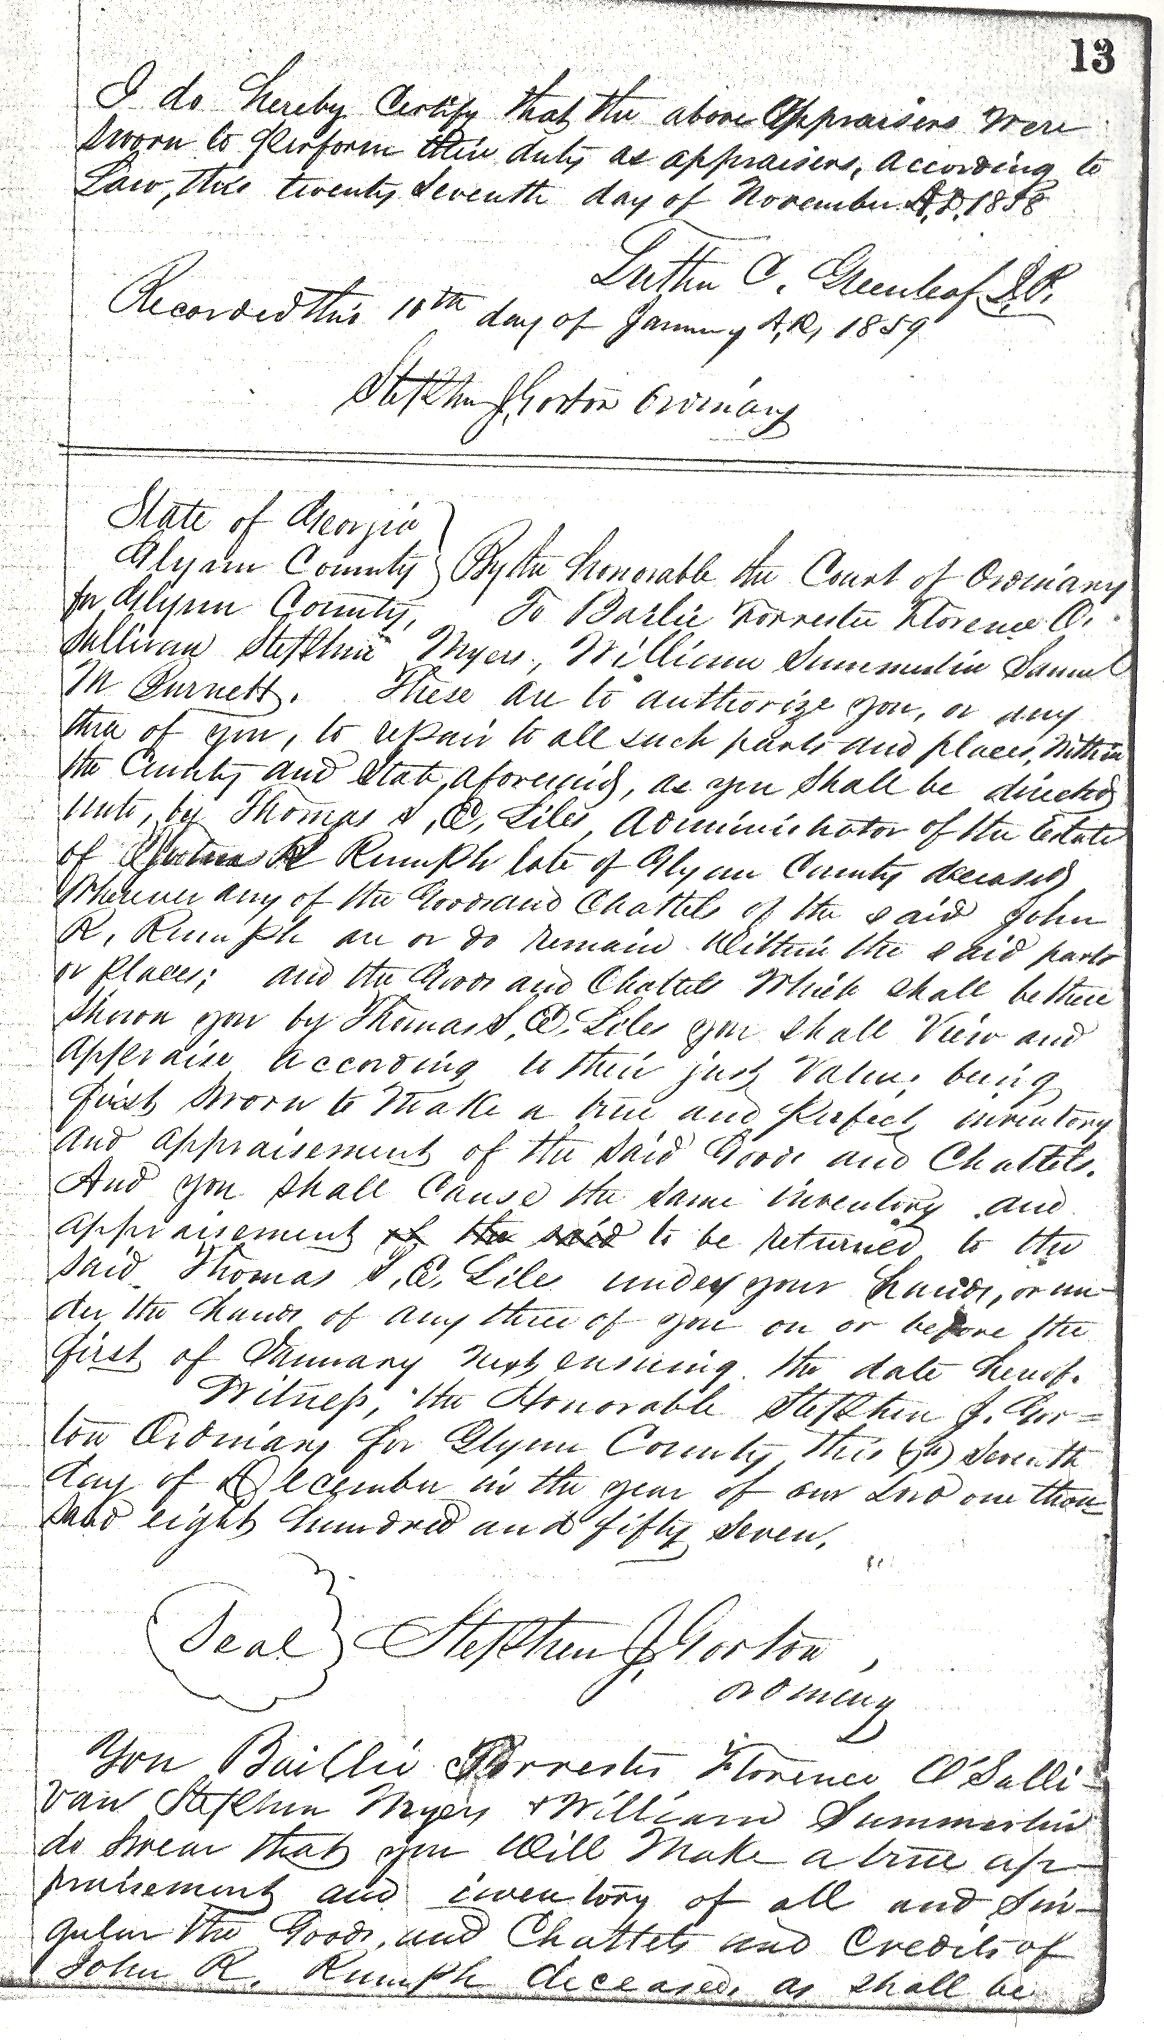 13
I do hereby Certify that the above Appraisers were
sworn to perform their duty as appraisers, according to
Law, this twenty Seventh day of November A,D, 1858
Luther C. Greenleaf J.P.
Recorded this 10th day of January A,D, 1859
Stephen J. Gorton Ordinary
State of Georgia
Glynn County } By the Honorable the Court of Ordinary
for Glynn County, To Bazlie Forrester Florence O.
Sullivan Stephen Myers, William Summerlin Samuel
M Burnett. These are to authorize you, or any
three of you, to repair to all such parts and places, within
the County and State, aforesaid, as you shall be directed
unto, by Thomas S, E, Liles, Administrator of the Estate
of R Rumph late of Glynn County deceased
Wherever any of the Goods and Chattels of the said John
R, Rumph are or do remain within the said parts
or places; and the Goods and Chattels which shall be there
shown you by Thomas S, E, Liles you shall View and
appraise according to their just Value, being
first sworn to make a true and perfect inventory
and appraisement of the said Goods and Chattels.
And you shall Cause the same inventory and
appraisement of the said to be returned to the
said Thomas S, E, Liles under your hands, or un-
der the hands of any three of you on or before the
first of January next ensuing the date hereof.
Witness, the Honorable Stephen J. Gor=
ton Ordinary for Glynn County, this (7th) Seventh
day of December in the year of our Lord one thou-
sand eight hundred and fifty seven.
Seal Stephen J. Gorton,
Ordinary
You Baillie Forrester Florence O'Sulli-
van Stephen Myers & William Summerlin
do swear that you will make a true ap-
praisement and inventory of all and Sin-
gular the Goods, and Chattels and Credits of
John R. Rumph deceased, as shall be